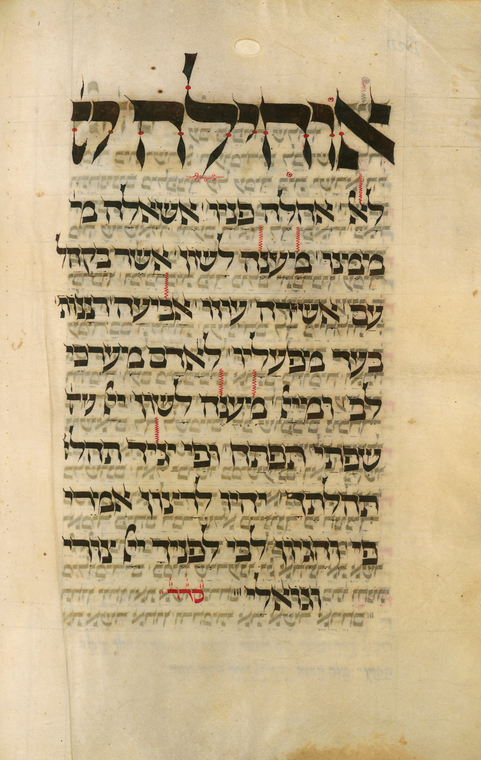 אוחילה
לאל אחלה פניו אשאלה מ
ממנו מענה לשון אשר בקהל
עם אשירה עוזו אביעה רננות
בעד מפעליו לאדם מערכי
לב ומיי מענה לשון יי שפ
שפתי תפתח ופי יגיד תהל
תהלתך יהיו לרצון אמרי
פי והגיון לבי לפניך יי צורי
וגואלי סדר